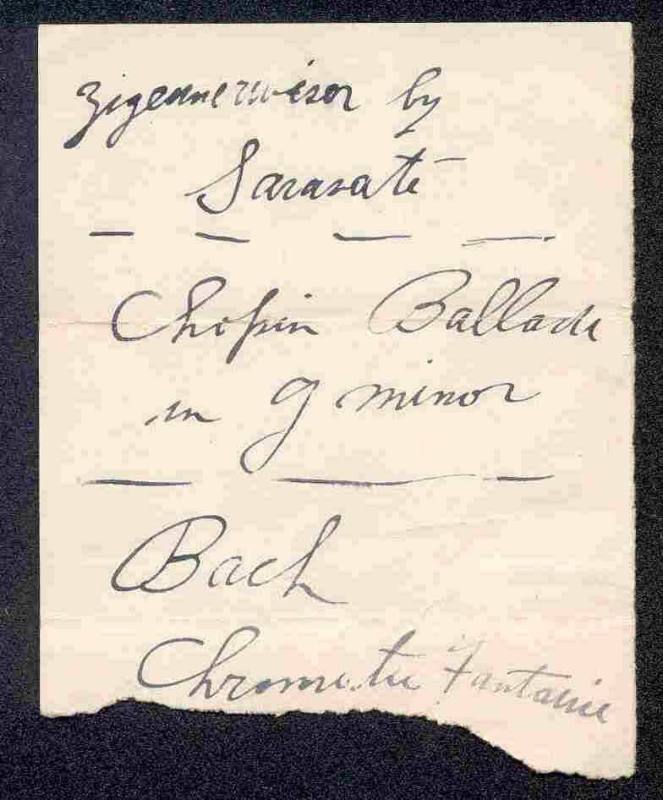 Zigeunerweisen by
Sarasate
Chopin Ballade
in g minor
Bach
Chromatic Fantaisie